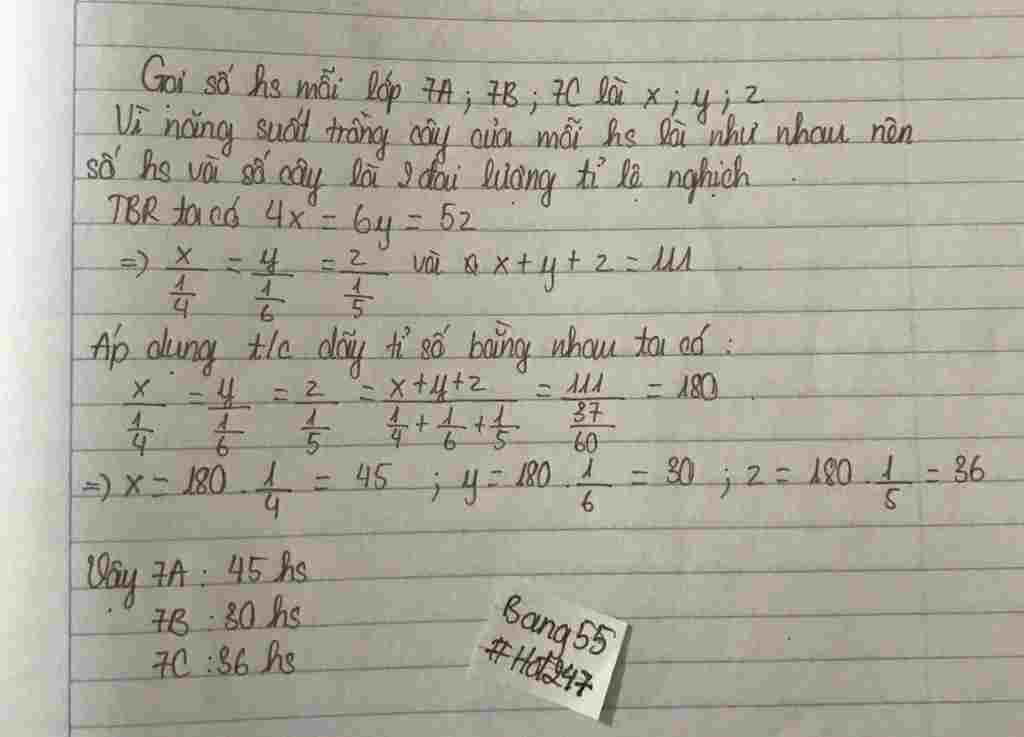 Gọi số hs mỗi lớp 7A; 7B; 7C là x; y; z
Vì năng suất trồng cây của mỗi hs là như nhau nên
số hs và số cây là 2 đại lượng tỉ lệ nghịch.
TBR ta có 4x = 6y = 5z
=> x/(1/4) = y/(1/6) = z/(1/5) và x + y + z = 111
Áp dụng t/c dãy tỉ số bằng nhau ta có:
x/(1/4) = y/(1/6) = z/(1/5) = (x+y+z)/(1/4 + 1/6 + 1/5) = 111/(37/60) = 180
=> x = 180 . 1/4 = 45 ; y = 180 . 1/6 = 30 ; z = 180 . 1/5 = 36
Vậy 7A : 45 hs
7B : 30 hs
7C : 36 hs
Bang55
#Hot247